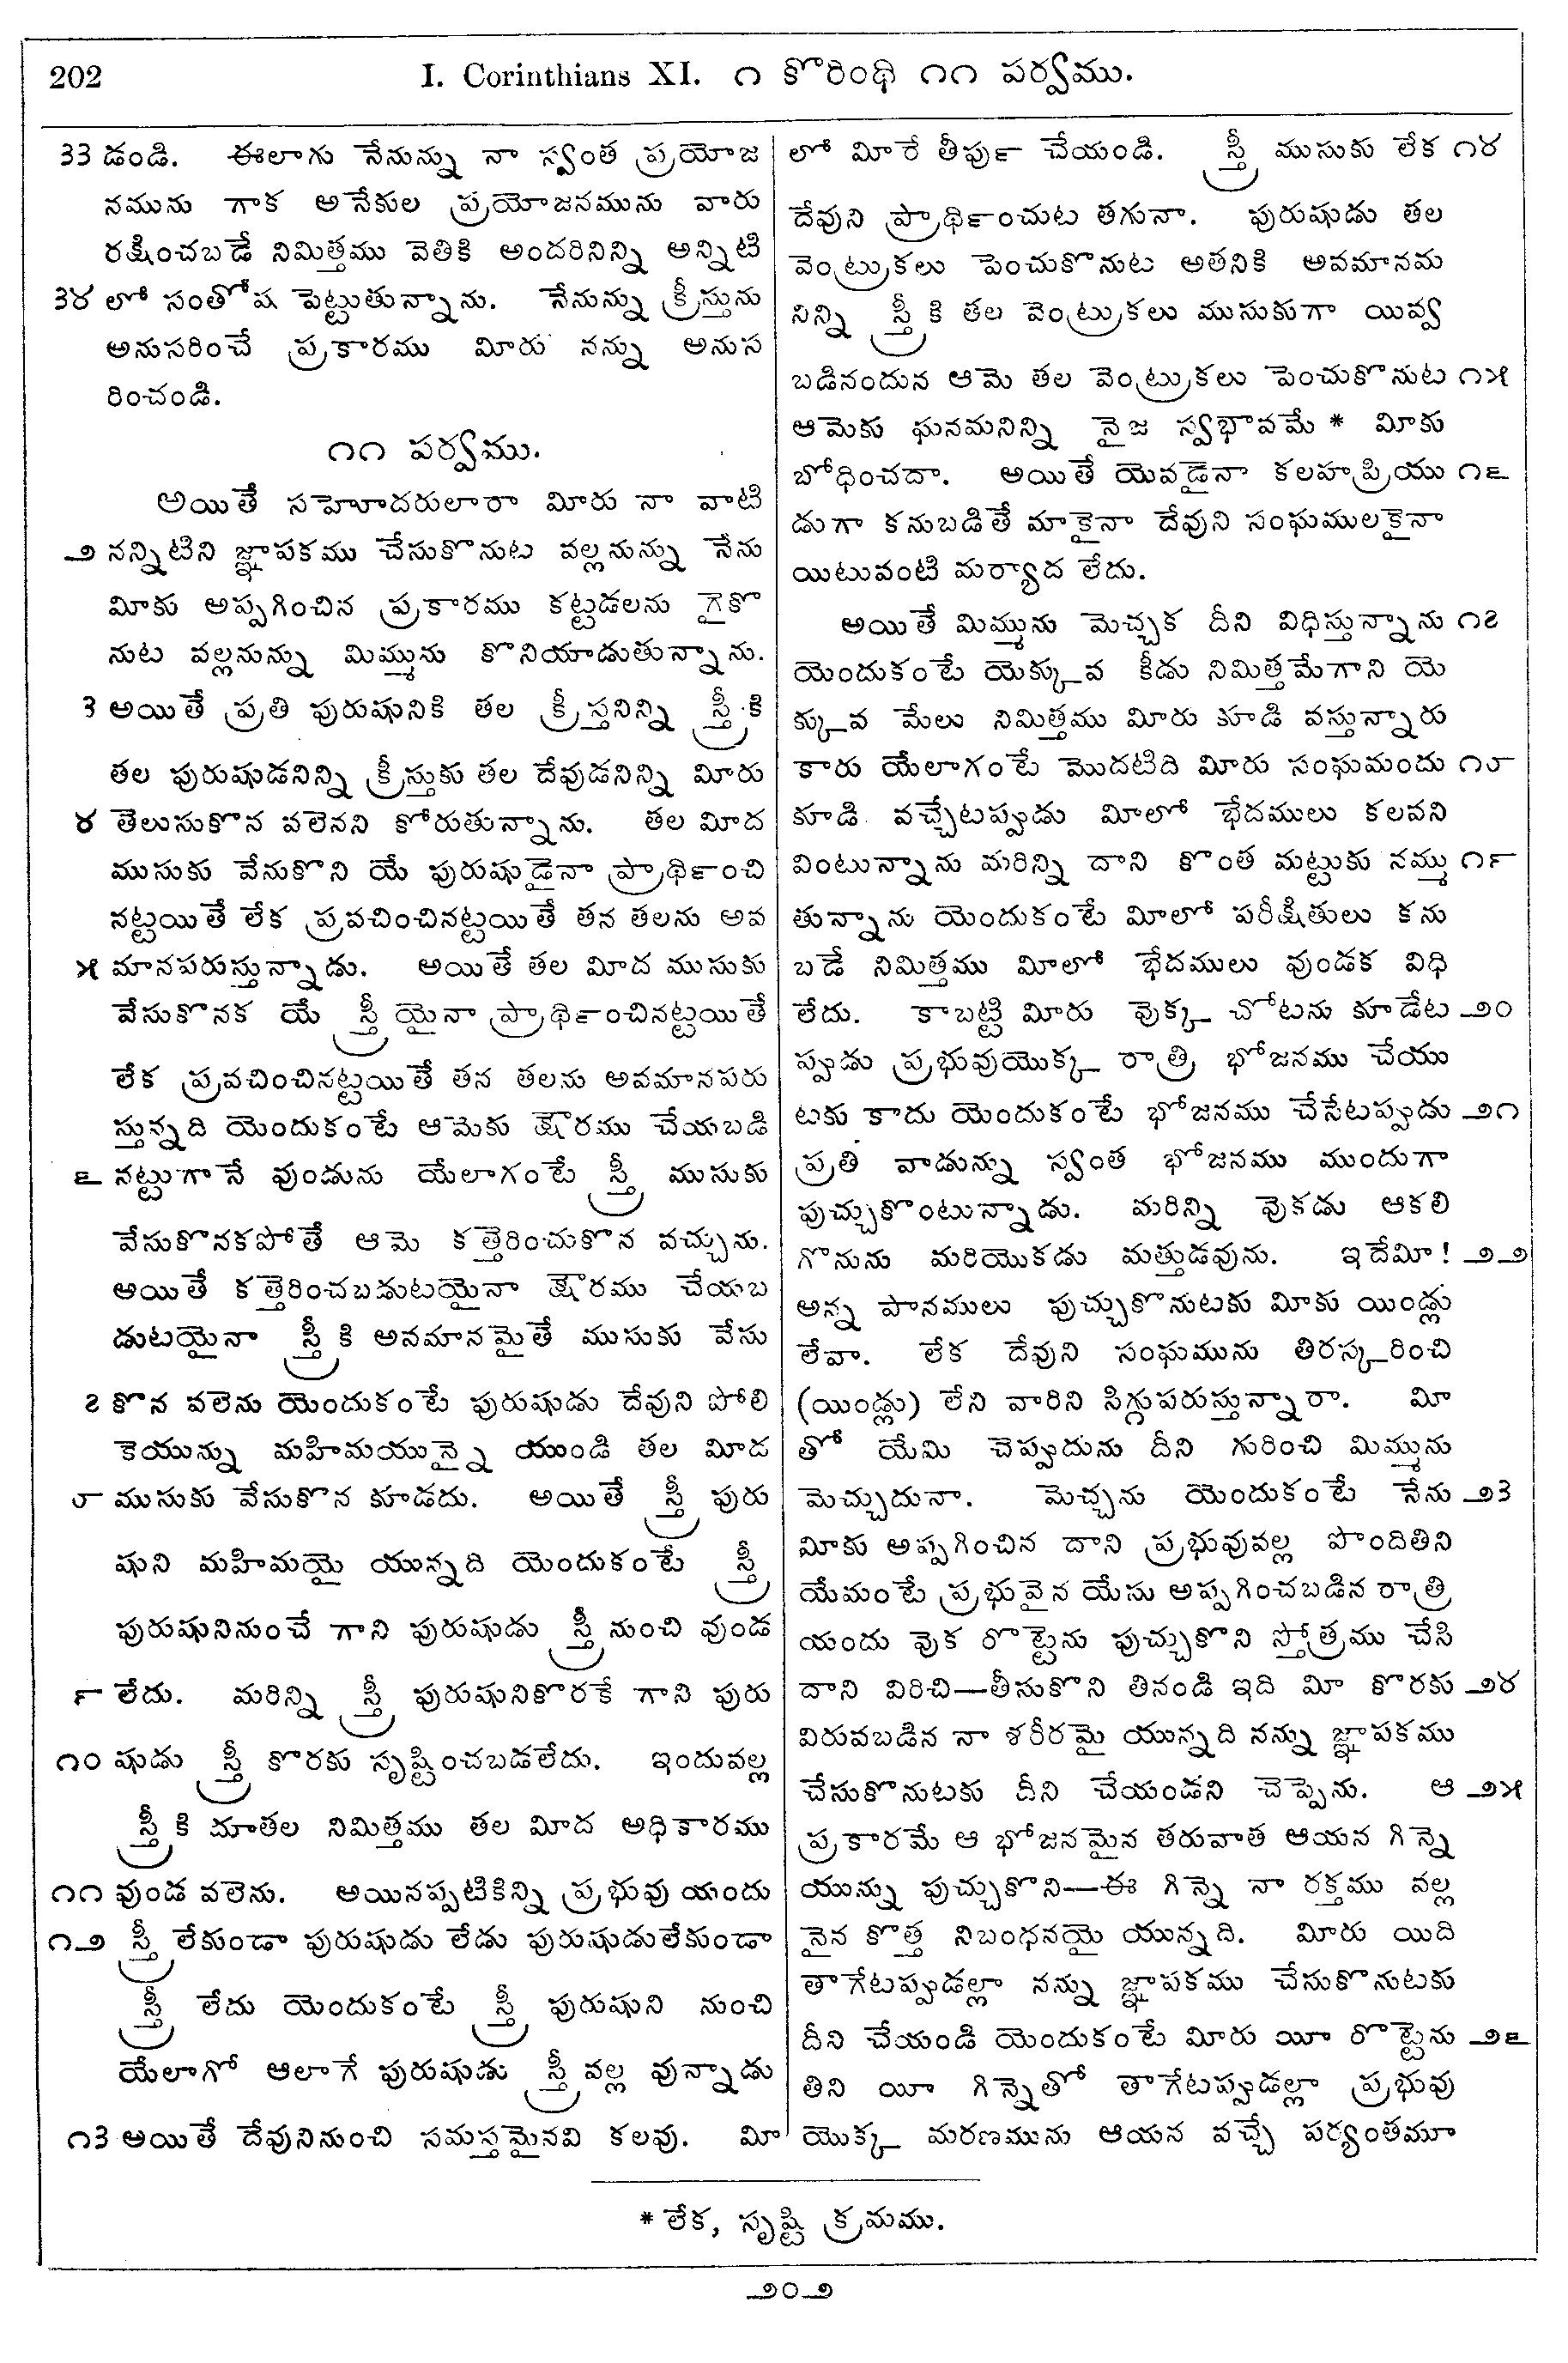 202
I. Corinthians XI. ౧ కొరింథి ౧౧ పర్వము.
33 డండి. ఈలాగు నేనున్ను నా స్వంత ప్రయోజ
నమును గాక అనేకుల ప్రయోజనమును వారు
రక్షించబడే నిమిత్తము వెతికి అందరినిన్ని అన్నిటి
3౪ లో సంతోష పెట్టుతున్నాను. నేనున్ను క్రీస్తును
అనుసరించే ప్రకారము మీరు నన్ను అనుస
రించండి.
౧౧ పర్వము.
అయితే సహెూదరులారా మీరు నా వాటి
౨ నన్నిటిని జ్ఞాపకము చేసుకొనుట వల్లనున్ను నేను
మీకు అప్పగించిన ప్రకారము కట్టడలను గైకొ
నుట వల్లనున్ను మిమ్మును కొనియాడుతున్నాను.
3 అయితే ప్రతి పురుషునికి తల క్రీస్తనిన్ని స్త్రీకి
తల పురుషుడనిన్ని క్రీస్తుకు తల దేవుడనిన్ని మీరు
౪ తెలుసుకొన వలెనని కోరుతున్నాను. తల మీద
ముసుకు వేనుకొని యే పురుషుడైనా ప్రాథి౯ంచి
నట్టయితే లేక ప్రవచించినట్టయితే తన తలను అవ
౫ మానపరుస్తున్నాడు. అయితే తల మీద ముసుకు
వేసుకొనక యే స్త్రీ యైనా ప్రాథి౯ంచినట్టయితే
లేక ప్రవచించినట్టయితే తన తలను అవమానపరు
స్తున్నది యెందుకంటే ఆమెకు క్షౌరము చేయబడి
౬ నట్టుగానే వుండును యేలాగంటే స్త్రీ ముసుకు
వేసుకొనకపోతే ఆమె కత్తెరించుకొన వచ్చును.
అయితే కత్తెరించబడుటయైనా క్షౌరము చేయబ
డుటయైనా స్త్రీ కి అవమానమైతే ముసుకు వేసు
౭ కొన వలెను యెందుకంటే పురుషుడు దేవుని పోలి
కెయున్ను మహిమయున్నై యుండి తల మీద
౮ ముసుకు వేసుకొన కూడదు. అయితే స్త్రీ పురు
షుని మహిమయై యున్నది యెందుకంటే స్త్రీ
పురుషునినుంచే గాని పురుషుడు స్త్రీ నుంచి వుండ
౯ లేదు. మరిన్ని స్త్రీ పురుషునికొరకే గాని పురు
౧౦ షుడు స్త్రీ కొరకు సృష్టించబడలేదు. ఇందువల్ల
స్త్రీ కి దూతల నిమిత్తము తల మీద అధికారము
౧౧ వుండ వలెను. అయినప్పటికిన్ని ప్రభువు యందు
౧౨ స్త్రీ లేకుండా పురుషుడు లేడు పురుషుడులేకుండా
స్త్రీ లేదు యెందుకంటే స్త్రీ పురుషుని నుంచి
యేలాగో ఆలాగే పురుషుడు స్త్రీ వల్ల వున్నాడు
౧3 అయితే దేవునినుంచి సమస్తమైనవి కలవు. మీ
లో మీరే తీపు౯ చేయండి. స్త్రీ ముసుకు లేక ౧౪
దేవుని ప్రాథి౯ంచుట తగునా. పురుషుడు తల
వెంట్రుకలు పెంచుకొనుట అతనికి అవమానమ
నిన్ని స్త్రీ కి తల వెంట్రుకలు ముసుకుగా యివ్వ
బడినందున ఆమె తల వెంట్రుకలు పెంచుకొనుట ౧౫
ఆమెకు ఘనమనిన్ని నైజ స్వభావమే * మీకు
బోధించదా. అయితే యెవడైనా కలహప్రియు ౧౬
డుగా కనుబడితే మాకైనా దేవుని సంఘములకైనా
యిటువంటి మర్యాద లేదు.
అయితే మిమ్మును మెచ్చక దీని విధిస్తున్నాను ౧౭
యెందుకంటే యెక్కువ కీడు నిమిత్తమేగాని యె
క్కువ మేలు నిమిత్తము మీరు కూడి వస్తున్నారు
కారు యేలాగంటే మొదటిది మీరు సంఘమందు ౧౮
కూడి వచ్చేటప్పుడు మీలో భేదములు కలవని
వింటున్నాను మరిన్ని దాని కొంత మట్టుకు నమ్ము ౧౯
తున్నాను యెందుకంటే మీలో పరీక్షితులు కను
బడే నిమిత్తము మీలో భేదములు వుండక విధి
లేదు. కాబట్టి మీరు వుక్క చోటను కూడేట ౨౦
ప్పుడు ప్రభువుయొక్క రాత్రి భోజనము చేయు
టకు కాదు యెందుకంటే భోజనము చేసేటప్పుడు ౨౧
ప్రతి వాడున్ను స్వంత భోజనము ముందుగా
పుచ్చుకొంటున్నాడు. మరిన్ని వుకడు ఆకలి
గొనును మరియొకడు మత్తుడవును. ఇదేమీ! ౨౨
అన్న పానములు పుచ్చుకొనుటకు మీకు యిండ్లు
లేవా. లేక దేవుని సంఘమును తిరస్కరించి
(యిండ్లు) లేని వారిని సిగ్గుపరుస్తున్నారా. మీ
తో యేమి చెప్పుదును దీని గురించి మిమ్మును
మెచ్చుదునా. మెచ్చను యెందుకంటే నేను ౨3
మీకు అప్పగించిన దాని ప్రభువువల్ల పొందితిని
యేమంటే ప్రభువైన యేసు అప్పగించబడిన రాత్రి
యందు వుక రొట్టెను పుచ్చుకొని స్తోత్రము చేసి
దాని విరిచి—తీసుకొని తినండి ఇది మీ కొరకు ౨౪
విరువబడిన నా శరీరమై యున్నది నన్ను జ్ఞాపకము
చేసుకొనుటకు దీని చేయండని చెప్పెను. ఆ ౨౫
ప్రకారమే ఆ భోజనమైన తరువాత ఆయన గిన్నె
యున్ను పుచ్చుకొని—ఈ గిన్నె నా రక్తము వల్ల
నైన కొత్త నిబంధనయై యున్నది. మీరు యిది
తాగేటప్పుడల్లా నన్ను జ్ఞాపకము చేసుకొనుటకు
దీని చేయండి యెందుకంటే మీరు యీ రొట్టెను ౨౬
తిని యీ గిన్నెతో తాగేటప్పుడల్లా ప్రభువు
యొక్క మరణమును ఆయన వచ్చే పర్యంతమూ
* లేక, సృష్టి క్రమము.
౨౦౨